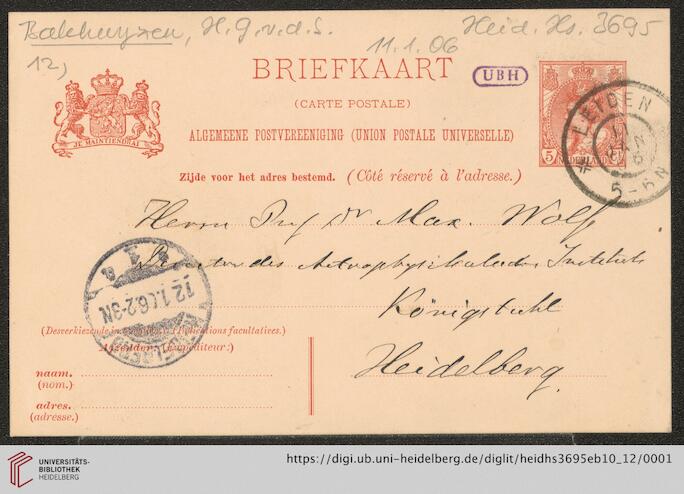 Bakhuyzen, H.G.v.d.S.
Heid. Hs. 3695
12)
11.1.06
BRIEFKAART
(CARTE POSTALE)
UBH
ALGEMEENE POSTVEREENIGING (UNION POSTALE UNIVERSELLE)
JE MAINTIENDRAI
5 NEDERLAND
LEIDEN
11 JAN 6
5-6N
Zijde voor het adres bestemd. (Côté réservé à l'adresse.)
Herrn Prof Dr Max. Wolf
Director des Astrophysikalischen Instituts
Königstuhl
Heidelberg.
12.1.06.2-3N
HEIDELBERG
(Desverkiezende in te vullen.) (Indications facultatives.)
Afzender: (Expéditeur:)
naam.
(nom.)
adres.
(adresse.)
UNIVERSITÄTS-
BIBLIOTHEK
HEIDELBERG
https://digi.ub.uni-heidelberg.de/diglit/heidhs3695eb10_12/0001